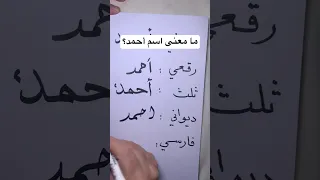 ما معنى اسم احمد؟
رقعي : أحمد
ثلث : أحمد
ديواني : احمد
فارسي :